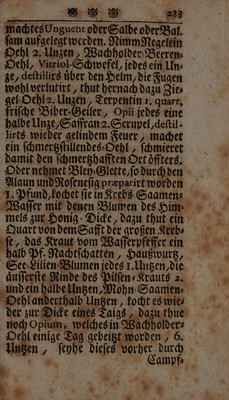 283
machtes Unguent oder Salbe oder Bal-
sam aufgelegt werden. Nimm Negelein
Oehl 2. Untzen, Wachholder-Beeren-
Oehl, Vitriol-Schwefel, jedes ein Un-
tze, destillirs über den Helm, die Fugen
wohl verlutirt, thut hernach dazu Zie-
gel-Oehl 2. Untzen, Terpentin 1. quart,
frische Biber-Geiler, Opii jedes eine
halbe Untze, Saffran 2. Scrupel, destil-
lirts wieder gelindem Feuer, machet
ein schmertzstillendes Oehl, schmieret
damit den schmertzhafften Ort öffters.
Oder nehmet Bley-Glette, so durch den
Alaun und Rosenessig præparirt worden
1. Pfund, kochet sie in Krebs-Saamen-
Wasser mit denen Blumen des Him-
mels zur Honig-Dicke, dazu thut ein
Quart von dem Safft der großen Kreb-
se, das Kraut vom Wasserpfeffer ein
halb Pf. Nachtschatten, Haußwurtz,
See-Lilien-Blumen jedes 1. Untzen, die
äusserste Rinde des Bilsen-Krauts 2.
und ein halbe Untzen, Mohn-Saamen-
Oehl anderthalb Untzen, kocht es wie-
der zur Dicke eines Taigs, dazu thut
noch Opium, welches in Wachholder-
Oehl einige Tag gebeitzt worden, 6.
Untzen, seyhe dieses vorher durch
Campf-